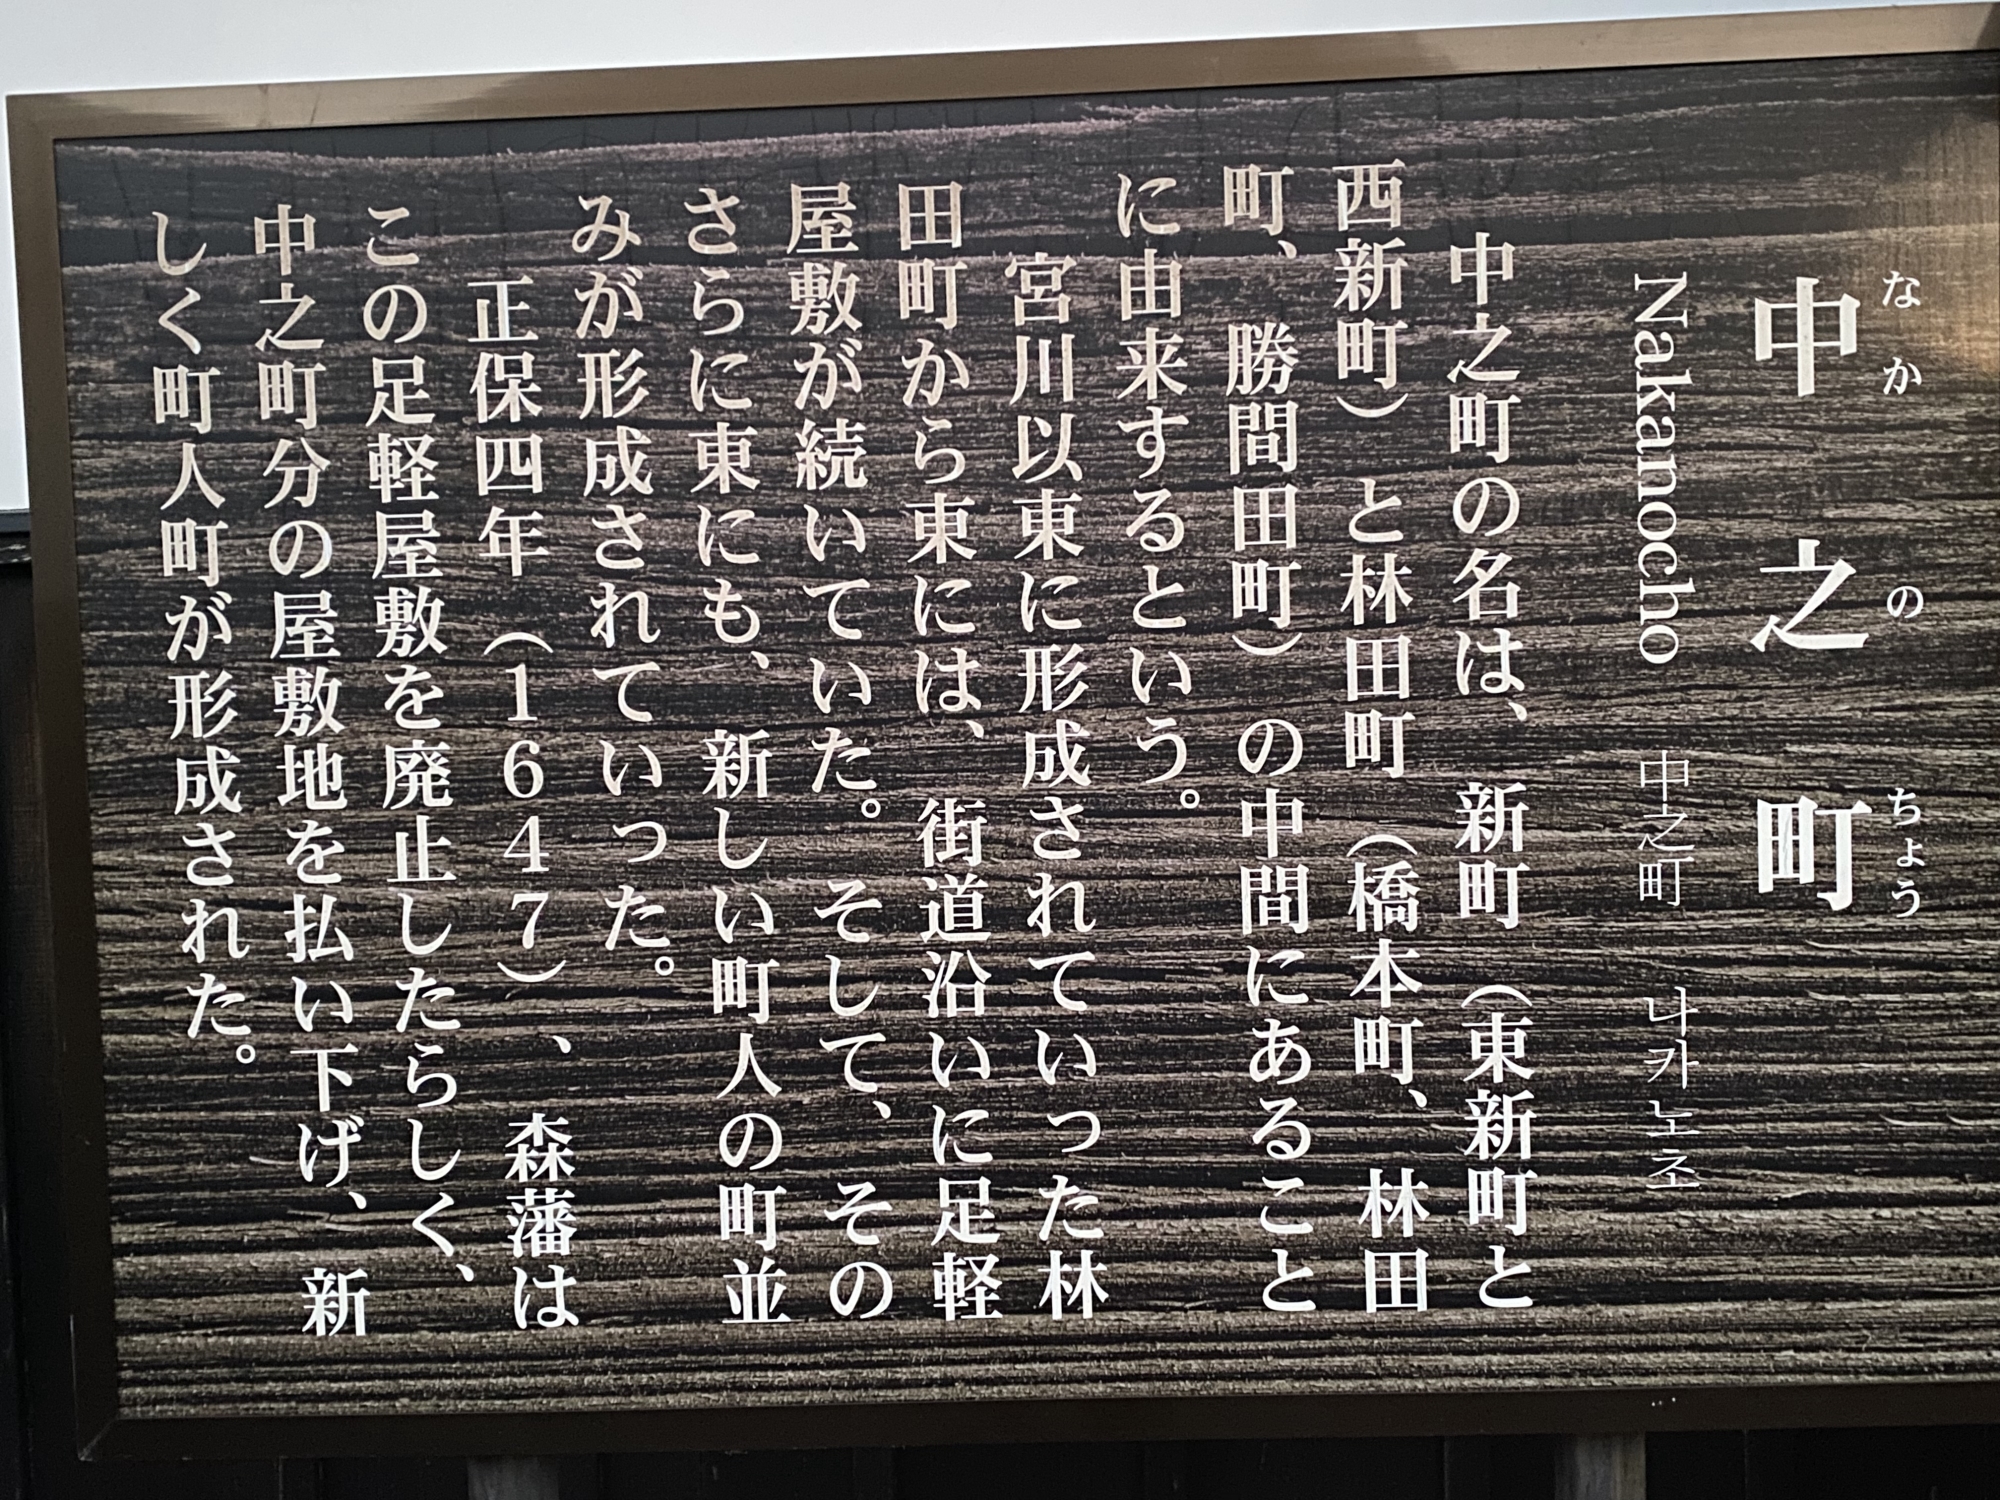 なかのちょう
中之町
Nakanocho 中之町 나카노조
中之町の名は、新町（東新町と
西新町）と林田町（橋本町、林田
町、勝間田町）の中間にあること
に由来するという。
宮川以東に形成されていった林
田町から東には、街道沿いに足軽
屋敷が続いていた。そして、その
さらに東にも、新しい町人の町並
みが形成されていった。
正保四年（１６４７）、森藩は
この足軽屋敷を廃止したらしく、
中之町分の屋敷地を払い下げ、新
しく町人町が形成された。